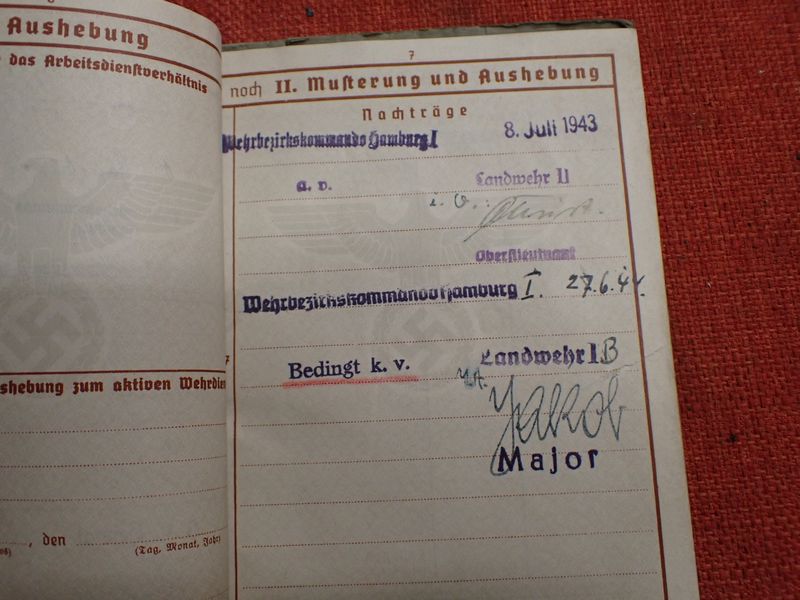 Aushebung
das Arbeitsdienstverhältnis
shebung zum aktiven Wehrdien
, den
(Tag, Monat, Jahr)
7
noch II. Musterung und Aushebung
Nachträge
Wehrbezirkskommando Hamburg I
8. Juli 1943
a. v.
Landwehr II
i. V.
Oberstleutnant
Wehrbezirkskommando Hamburg I. 27.6.44.
Bedingt k. v.
Landwehr I B
Jakob
Major